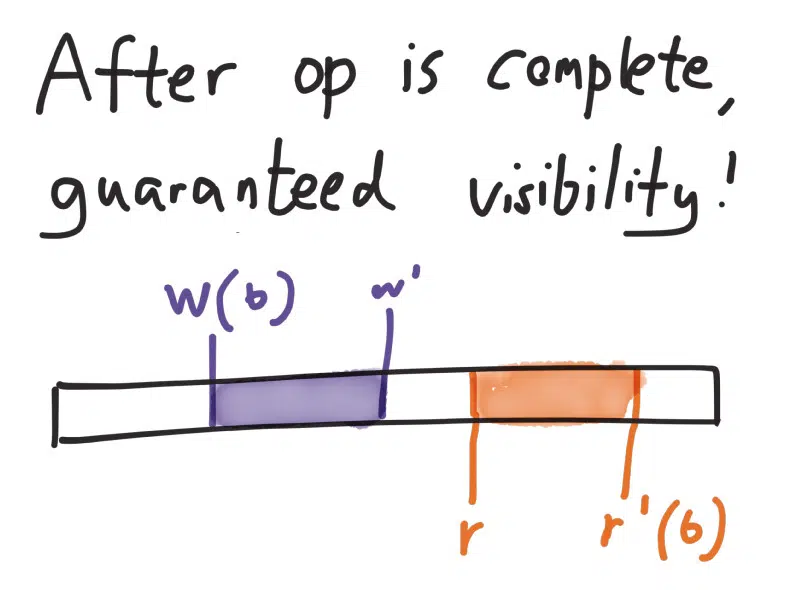 After op is complete,
guaranteed visibility!
W(b) w'
r r'(b)